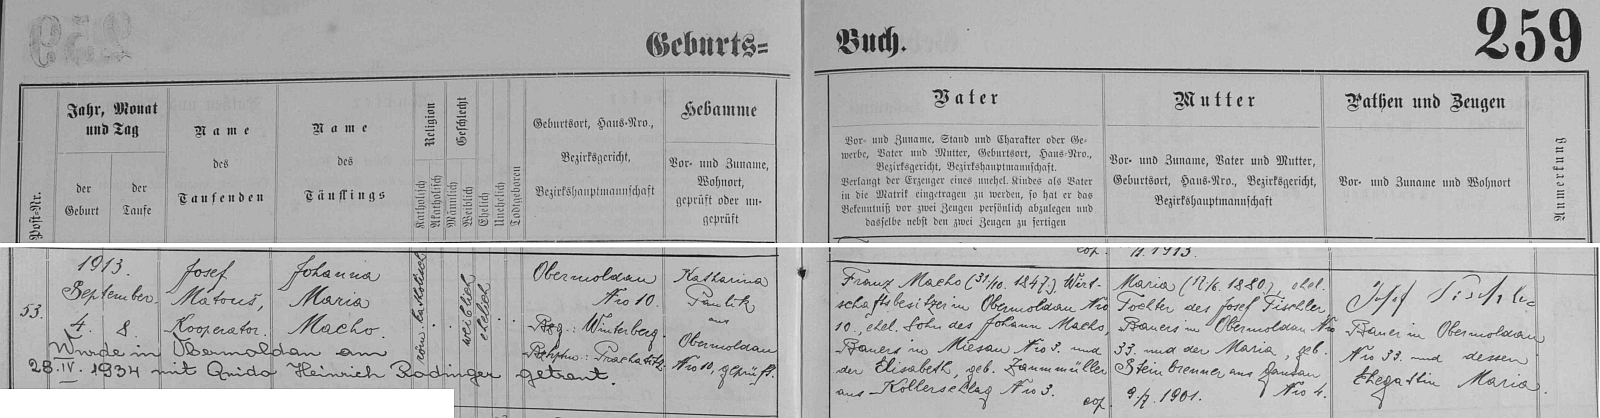 Geburts=
Buch.
259
Post=Nr.
Jahr, Monat
und Tag
der
Geburt
der
Taufe
Name
des
Taufenden
Name
des
Täuflings
Religion
Katholisch
Akatholisch
Geschlecht
Männlich
Weiblich
Ehelich
Unehelich
Todtgeboren
Geburtsort, Haus=Nro.,
Bezirksgericht,
Bezirkshauptmannschaft
Hebamme
Vor= und Zuname,
Wohnort,
geprüft oder un=
geprüft
Vater
Vor= und Zuname, Stand und Charakter oder Ge=
werbe, Vater und Mutter, Geburtsort, Haus=Nro.,
Bezirksgericht, Bezirkshauptmannschaft.
Verlangt der Erzeuger eines unehel. Kindes als Vater
in die Matrik eingetragen zu werden, so hat er das
Bekenntniß vor zwei Zeugen persönlich abzulegen und
dasselbe nebst den zwei Zeugen zu fertigen
Mutter
Vor= und Zuname, Vater und Mutter,
Geburtsort, Haus=Nro., Bezirksgericht,
Bezirkshauptmannschaft
Pathen und Zeugen
Vor= und Zuname und Wohnort
Anmerkung
53.
1913.
September.
4. 8.
Josef
Matouš,
Kooperator.
Johanna
Maria
Macho.
röm. katholisch
weiblich
ehelich
Obermoldau
Nro 10.
Bzg.: Winterberg.
Bzhptm: Prachatitz.
Katharina
aus
Obermoldau
Nro 10, geprüft.
Wurde in Obermoldau am
28. IV. 1934 mit Quido Heinrich Rodinger getraut.
cop. 11. 1913.
Franz Macho (31/10. 1847.) Wirt=
schaftsbesitzer in Obermoldau Nro
10., ehel. Sohn des Johann Macho,
Bauers in Miesau Nro 3. und
der Elisabeth, geb. Zaunmüller
aus Kollerschlag Nro 3.
Maria (17/6. 1880.), ehel.
Tochter des Josef Tischler,
Bauers in Obermoldau Nro
33. und der Maria, geb.
Steinbrenner aus
Nro 4.
cop. 9/7. 1901.
Josef Tischler
Bauer in Obermoldau
Nro 33. und dessen
Ehegattin Maria.